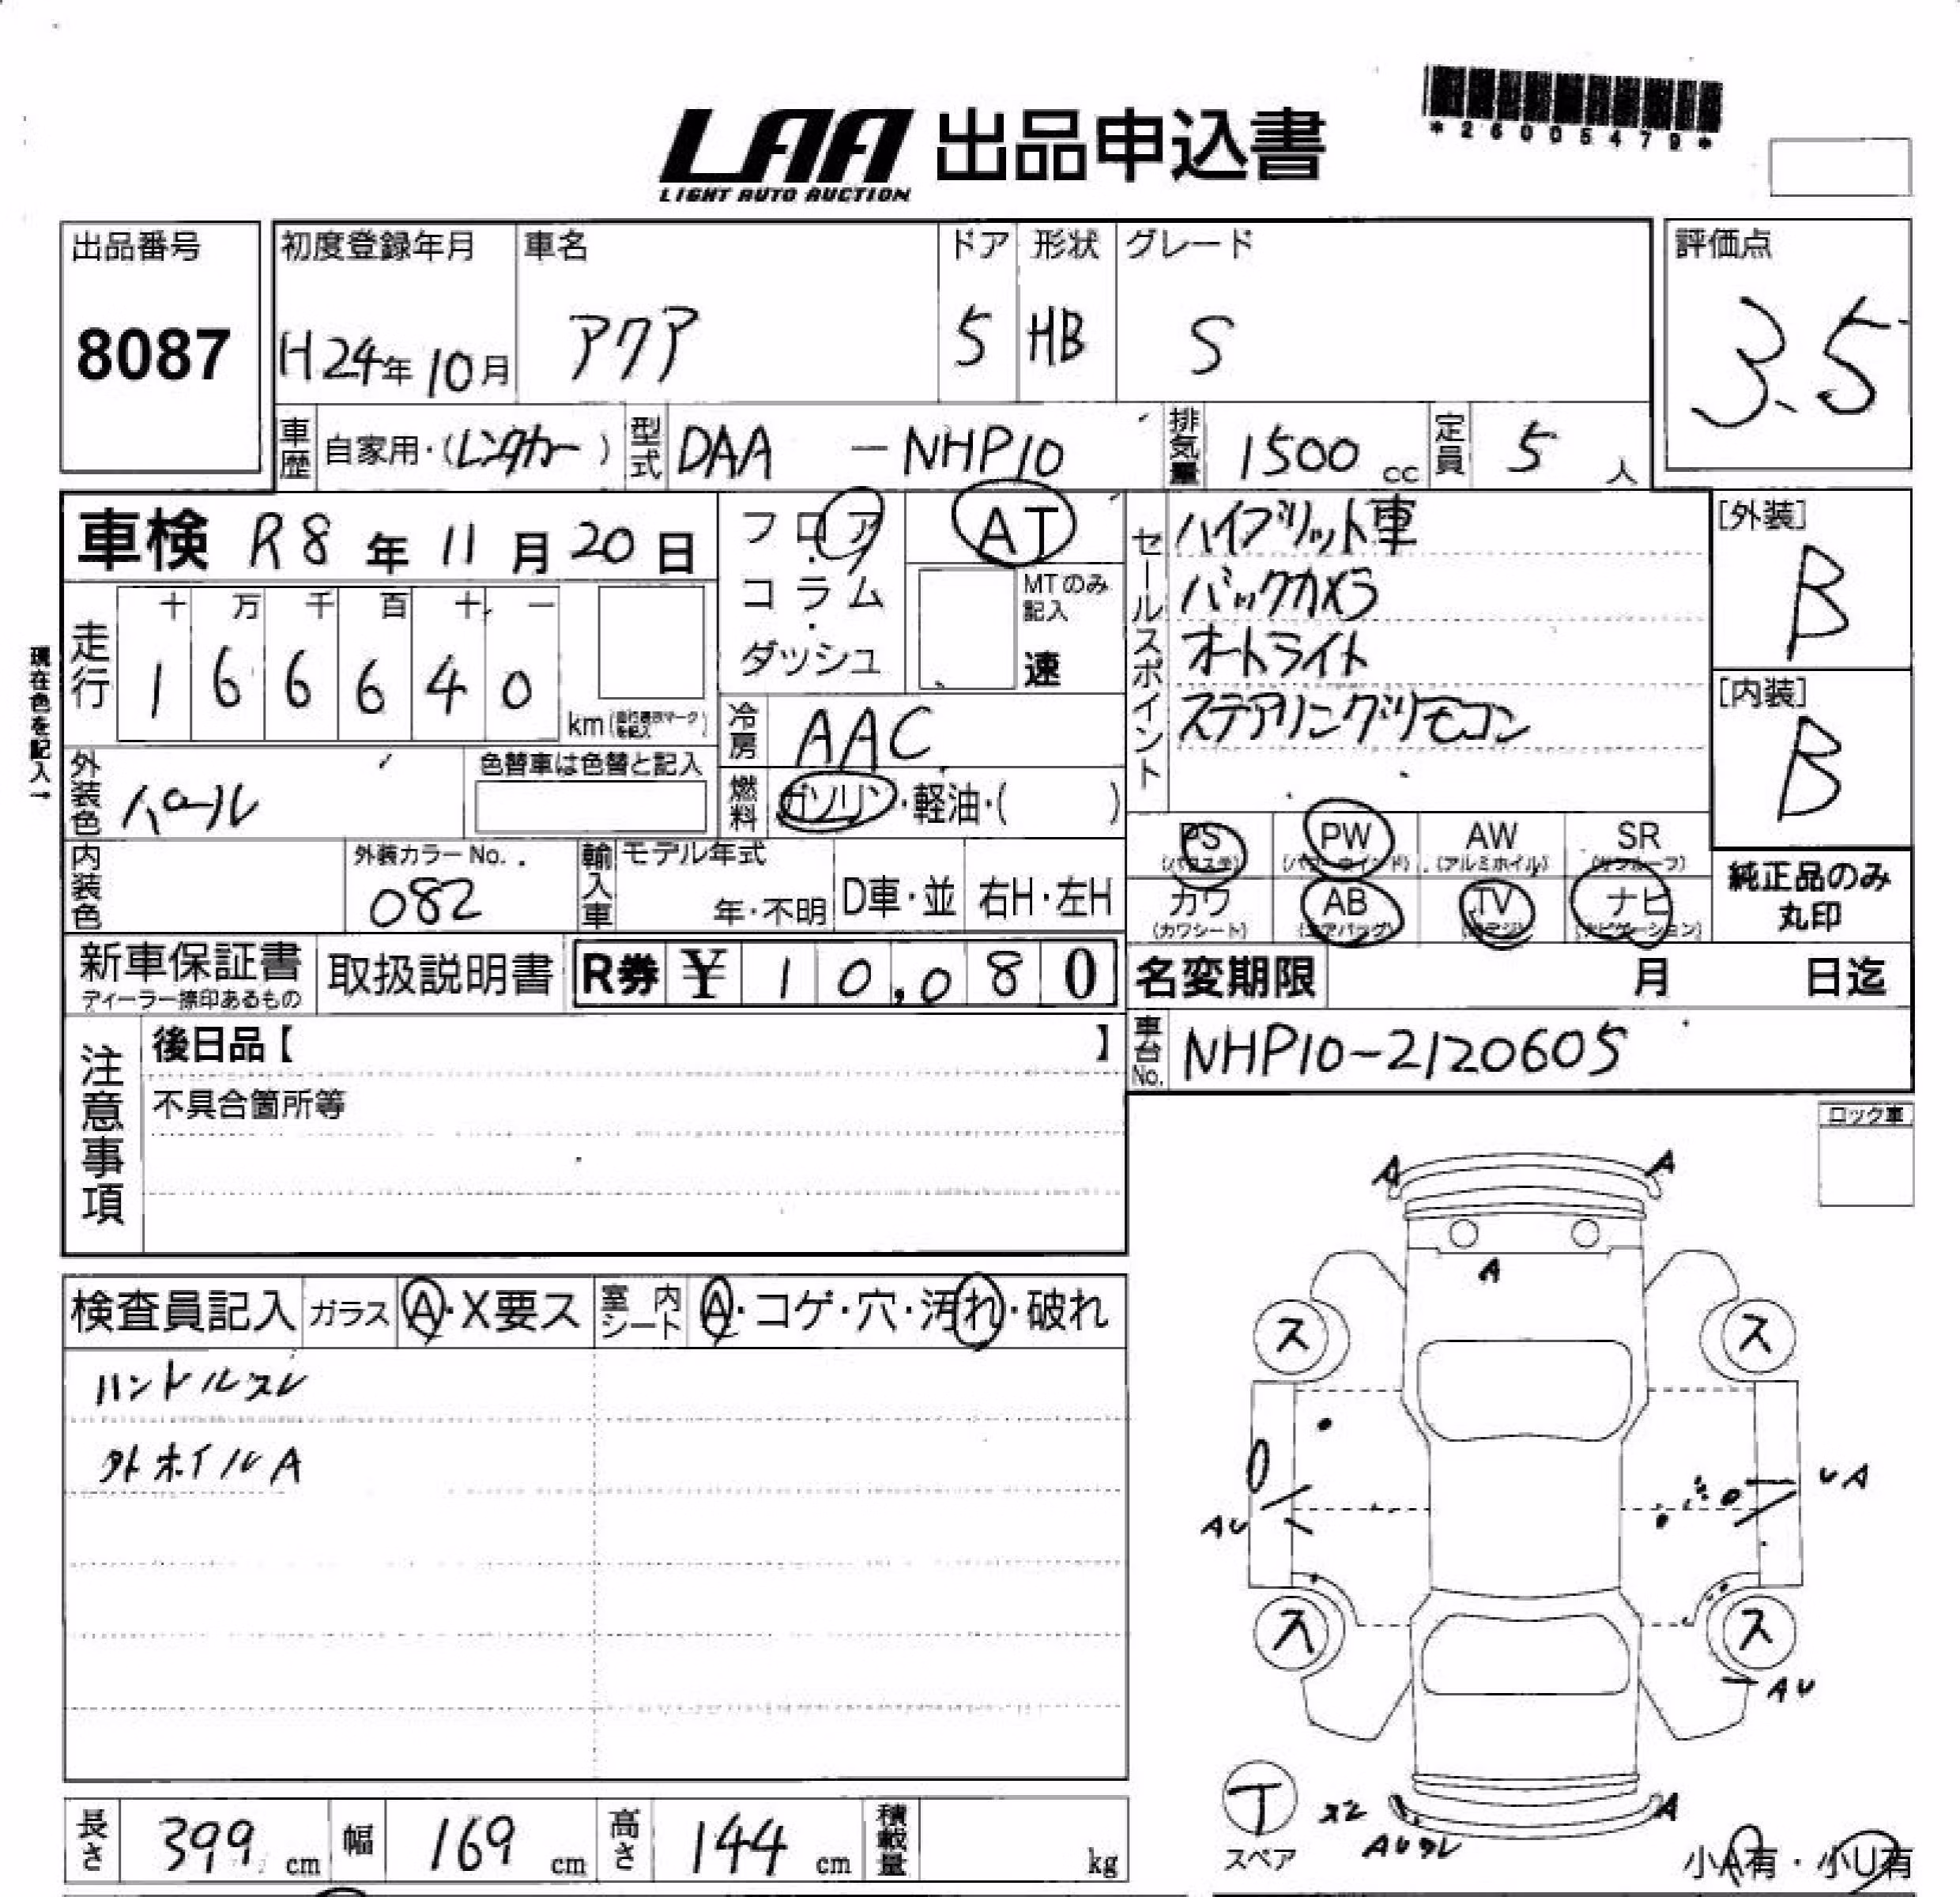 *26005479*
LAA 出品申込書
LIGHT AUTO AUCTION
出品番号
8087
初度登録年月
H24年10月
車名
アクア
ドア
5
形状
HB
グレード
S
評価点
3.5
車歴 自家用・(レンタカー)
型式 DAA - NHP10
排気量 1500 cc
定員 5 人
車検 R8年11月20日
フロア・コラム・ダッシュ
AT
MTのみ記入
速
セールスポイント
ハイブリット車
バックカメラ
オートライト
ステアリングリモコン
[外装]
B
[内装]
B
現在色を記入→
走行
十 万 千 百 十 一
1 6 6 6 4 0
km
冷房 AAC
燃料 ガソリン・軽油・( )
外装色 パール
色替車は色替と記入
内装色
外装カラーNo.
082
輸入車
モデル年式
年・不明
D車・並
右H・左H
PS
(パワステ)
PW
(パワーウインド)
AW
(アルミホイル)
SR
(サンルーフ)
カワ
(カワシート)
AB
(エアバッグ)
TV
ナビ
(ナビゲーション)
純正品のみ
丸印
新車保証書
ディーラー捺印あるもの
取扱説明書
R券 ¥ 10,080
名変期限 月 日迄
注意事項
後日品【 】
不具合箇所等
車台No. NHP10-2120605
ロック車
検査員記入
ガラス A・X要ス
室内シート A・コゲ・穴・汚れ・破れ
ハンドルスレ
外ホイルA
A
A
A
ス
ス
UA
AU
ス
ス
AU
T
スペア
A
小A有・小U有
長さ 399 cm
幅 169 cm
高さ 144 cm
積載量 kg